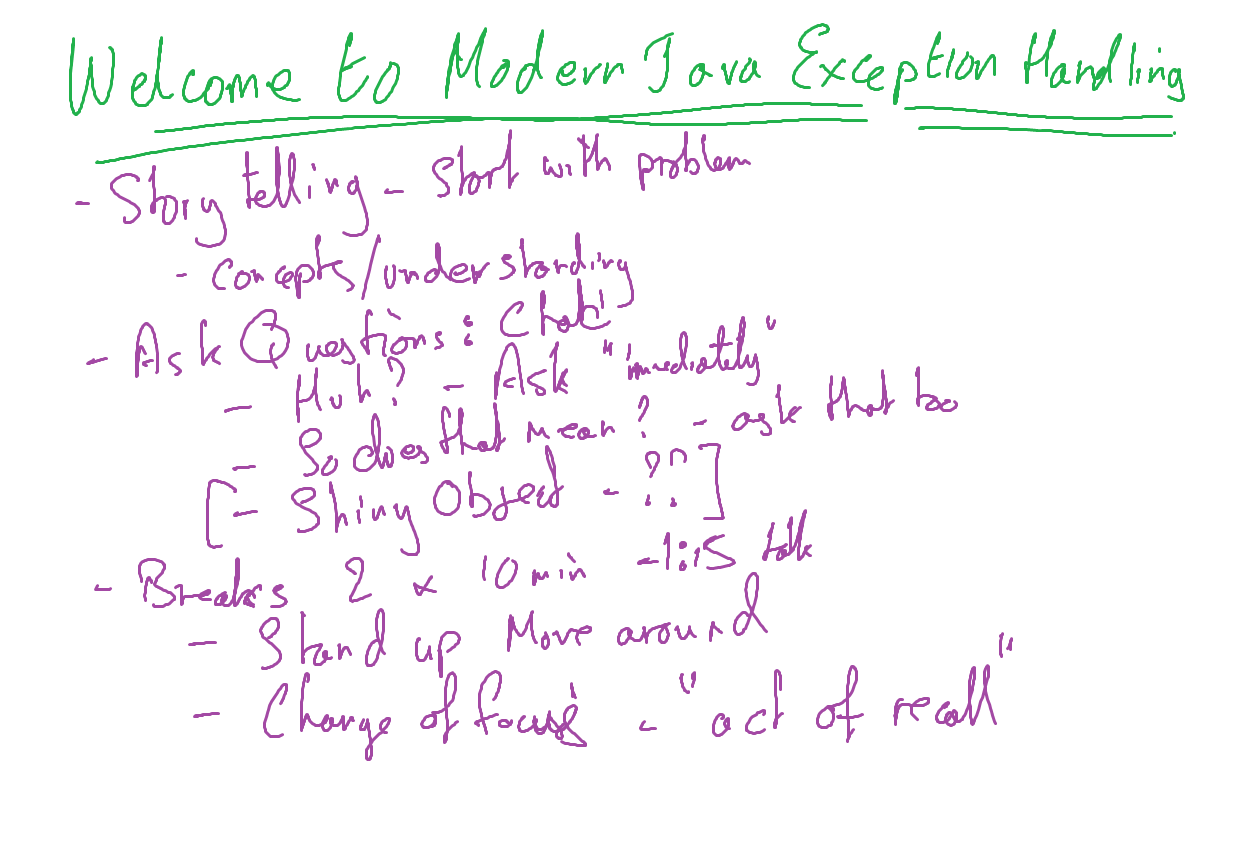 Welcome to Modern Java Exception Handling
- Story telling - Start with problem
- Concepts/understanding
- Ask Questions: Chat!
- Huh? - Ask "immediately"
- So does that mean? - ask that too
[- Shiny Object - ??]
- Breaks 2 x 10 min - 1:15 talk
- Stand up Move around
- Change of focus - "act of recall"